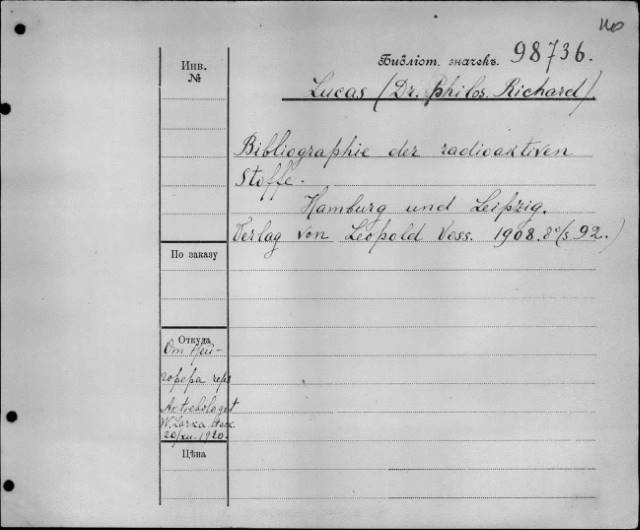 Библіот. значекъ. 98736.
Инв.
№
Lucas (Dr. Philos. Richard)
Bibliographie der radioaktiven
Stoffe.
Hamburg und Leipzig.
Verlag von Leopold Voss. 1908. 8° (s. 92.)
По заказу
Откуда
От
черезъ
Aktiebolaget
20/XII. 1920.
Цѣна